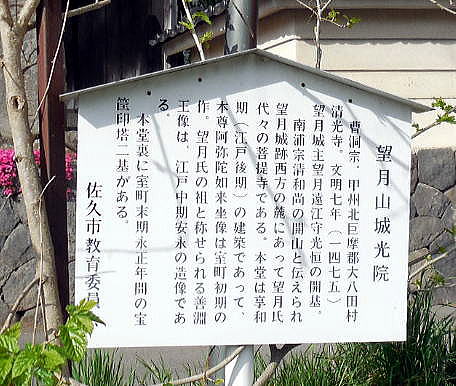 望月山城光院
曹洞宗、甲州北巨摩郡大八田村
清光寺。文明七年（一四七五）
望月城主望月遠江守光恒の開基。
南浦宗清和尚の開山と伝えられ
望月城跡西方の麓にあって望月氏
代々の菩提寺である。本堂は享和
期（江戸後期）の建築であって、
本尊阿弥陀如来坐像は室町初期の
作。望月氏の祖と称せられる善淵
王像は、江戸中期安永の造像であ
る。
本堂裏に室町末期永正年間の宝
篋印塔二基がある。
佐久市教育委員